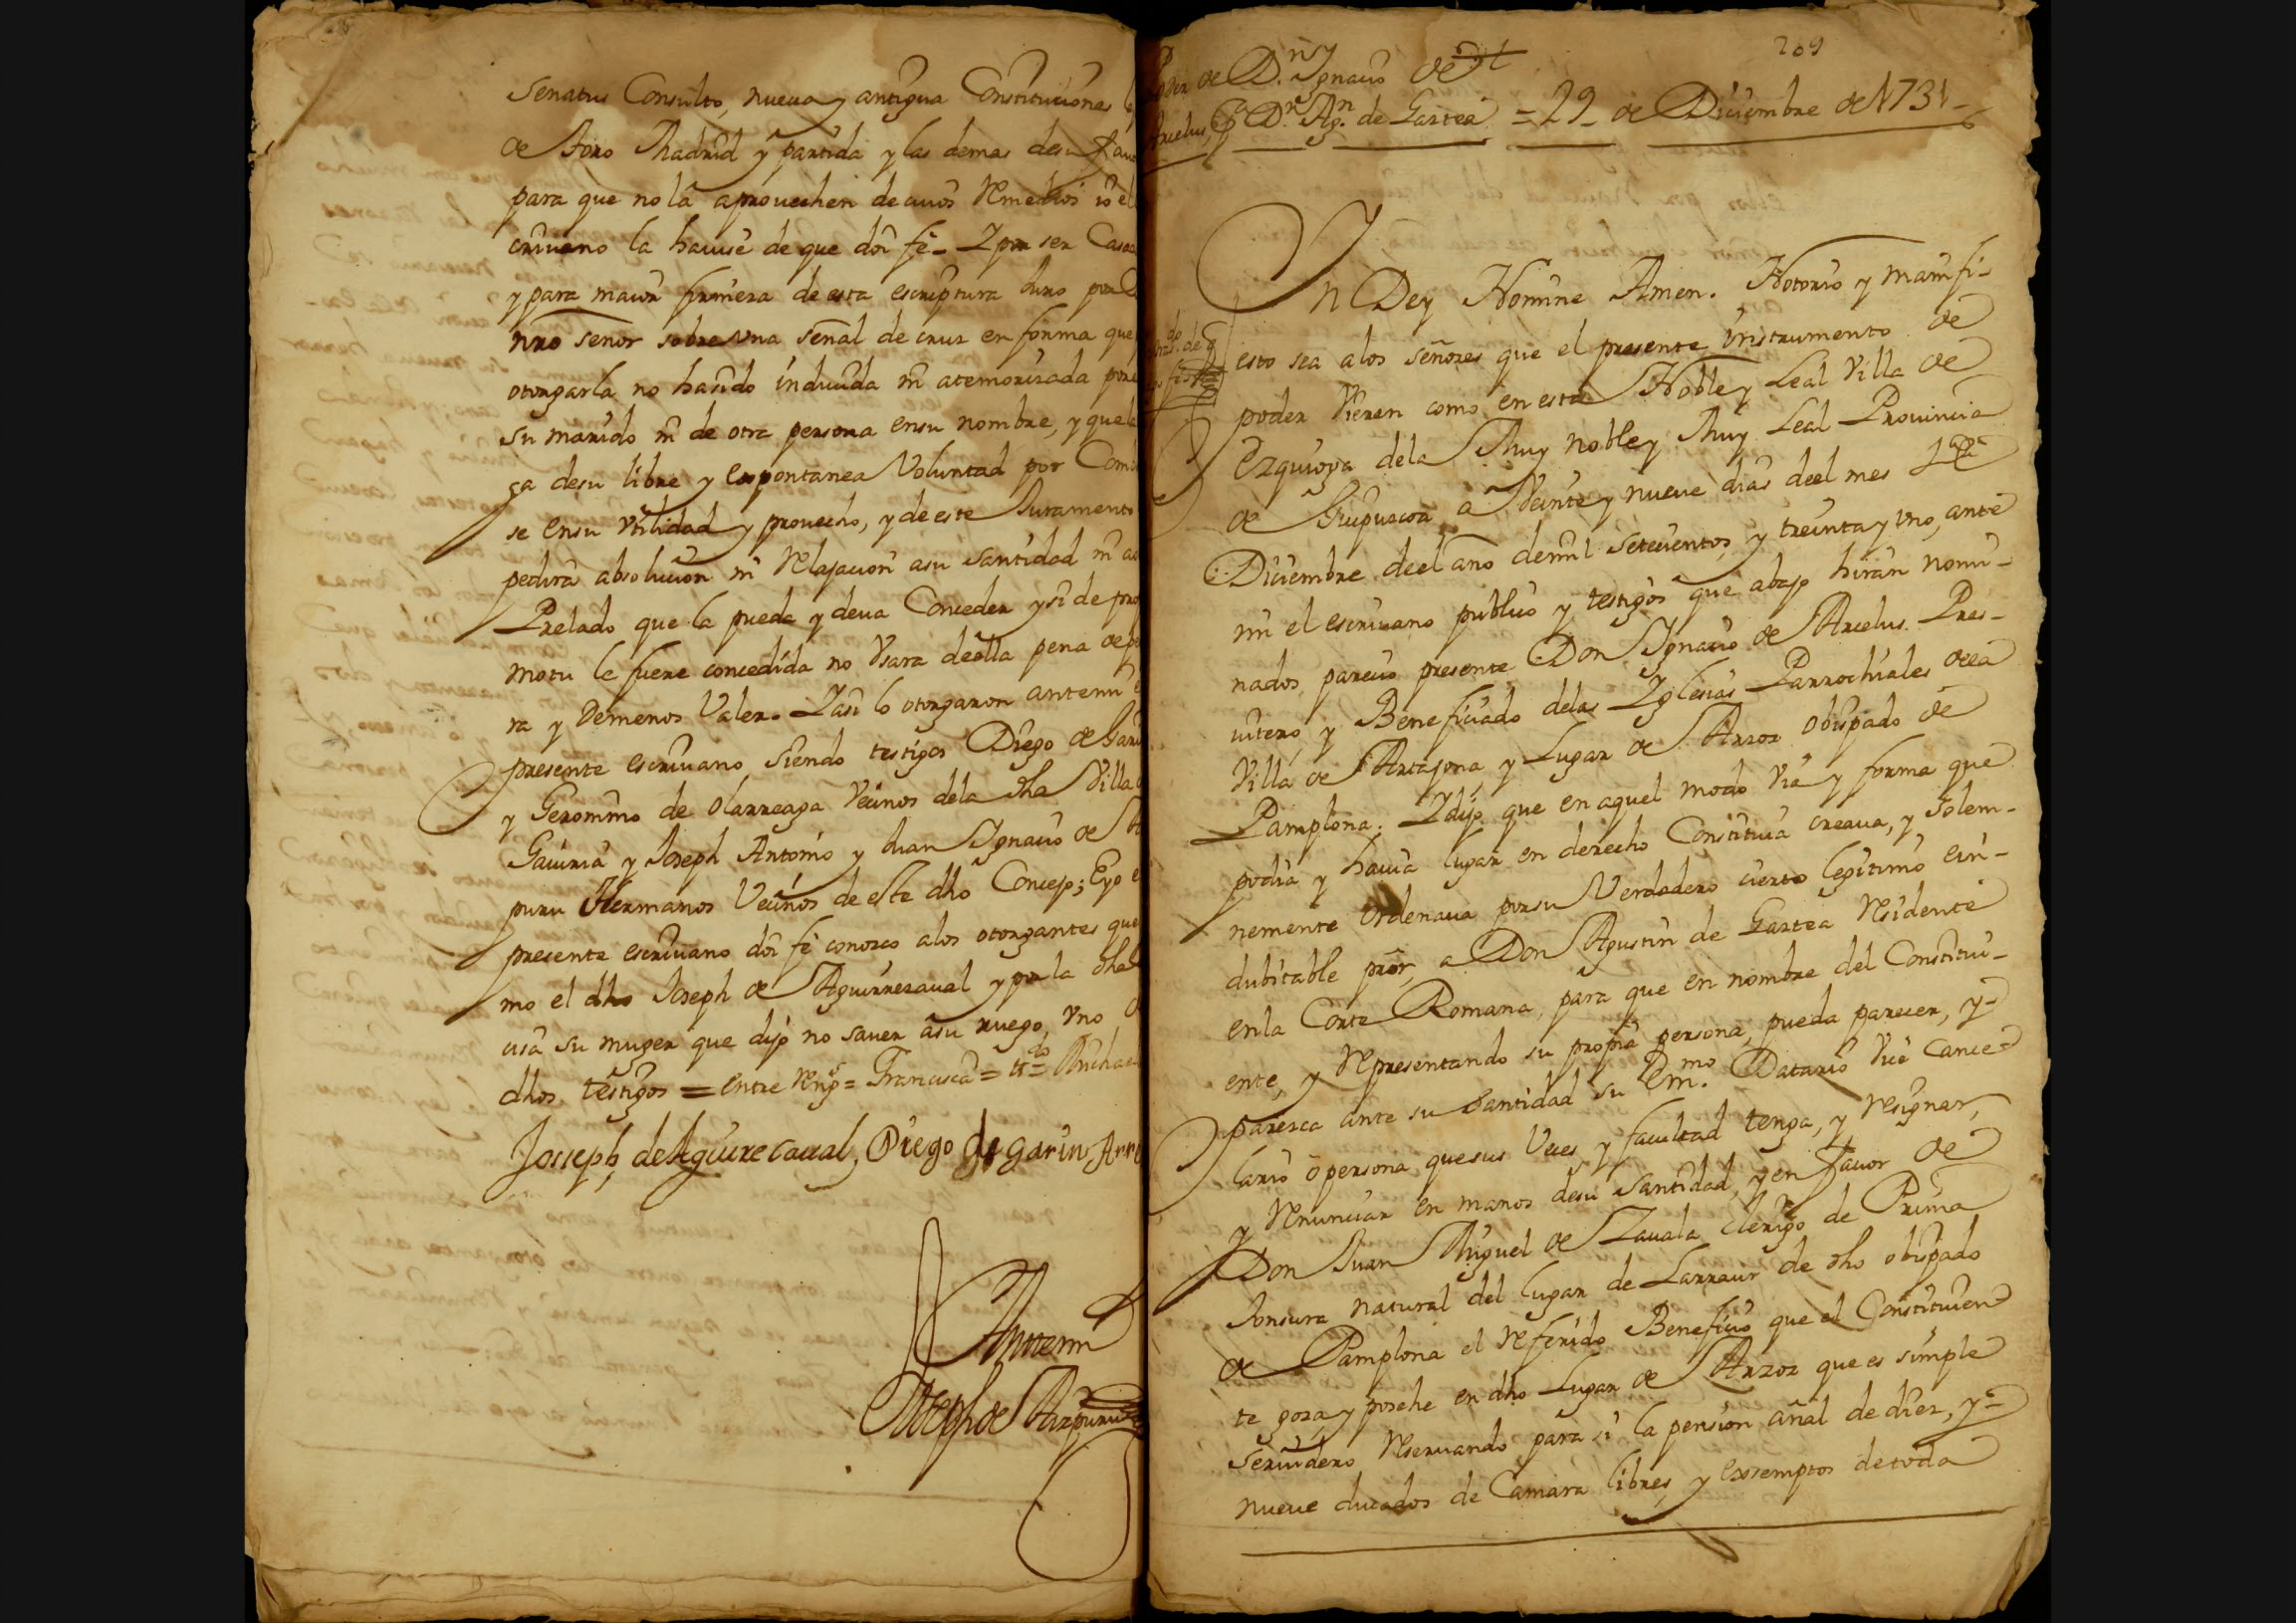 Senatus Consulto, nueua y antigua Constituciones
de Toro Madrid y partida y las demas desu fauo
para que no la aprouechen de cuios Remedios io el
criuano la hauise de que doi fe = I por ser Casada
y para maior firmeza de esta escriptura Juro por D
nro senor sobre una señal de cruz en forma que
otorgarla no hasido inducida ni atemorizada por
su marido ni de otra persona ensu nombre, y que la
ga desu libre y espontanea Voluntad por Com
se ensu Vtilidad y prouecho, y de este Juramento
pedira absolucion ni Relajacion asu santidad ni a
Prelado que la pueda y deua Conceder y si de pro
motu le fuere concedida no Vsara deella pena de pe
ra y demenos Valer. Iasi lo otorgaron antemi e
presente escriuano siendo testigos Diego de Gari
y Geronimo de Olarreaga Vecinos dela dha Villa
Gauiria y Joseph Antonio y Juan Ignacio de A
puru Hermanos Vecinos de este dho Concejo; Eyo e
presente escriuano doi fe conozco alos otorgantes que
mo el dho Joseph de Aguirrezaual y por la dha
cisca su muger que dijo no sauer asu ruego, vno
dhos testigos = entre Rengs = Francisca =
Josseph de Aguirecaual, Diego de garin Arr
Antemi
Joseph de Aizpuru
209
Poder de Dn Ignacio de
Arcelus, A Dn Agn de Gartea = 29 de Diciembre de 1731
In Dey Nomine Amen. Notorio y manifi-
esto sea alos señores que el presente instrumento de
poder Vieren como en esta Noble y Leal Villa de
Ezquioga dela Muy noble y Muy Leal Prouincia
de Guipuzcoa a Veinte y nueue dias deel mes de
Diciembre deel año demil setecientos y treinta y vno, ante
mi el escriuano publico y testigos que abajo hiran nomi-
nados parecio presente Don Ignacio de Arcelus Pres-
uitero, y Beneficiado delas Iglesias Parrochiales dela
Villa de Artajona y Lugar de Arzoz obispado de
Pamplona; I dijo que en aquel modo Via y forma que
podia y hauia lugar en derecho Constituia creaua, y solem-
nemente ordenaua porsu Verdadero cierto legitimo ein-
dubitable pror, a Don Agustin de Gartea Residente
enla Corte Romana, para que en nombre del Constitui-
ente, y Representando su propia persona, pueda parecer, y
paresca ante su Santidad su Emmo. Datario Vice Cance-
lario o persona quesus Veces, y facultad tenga, y Resignar,
y Renunciar en manos desu Santidad, y en fauor de
Don Juan Miguel de Zauala Clerigo de Prima
Tonsura natural del lugar de Larraur de dho obispado
de Pamplona el Referido Beneficio que el Constituien-
te goza y posehe en dho Lugar de Arzoz que es simple
seruidero Reseruando para si la pension añal de diez, y
nueue ducados de Camara libres, y exsemptos detoda